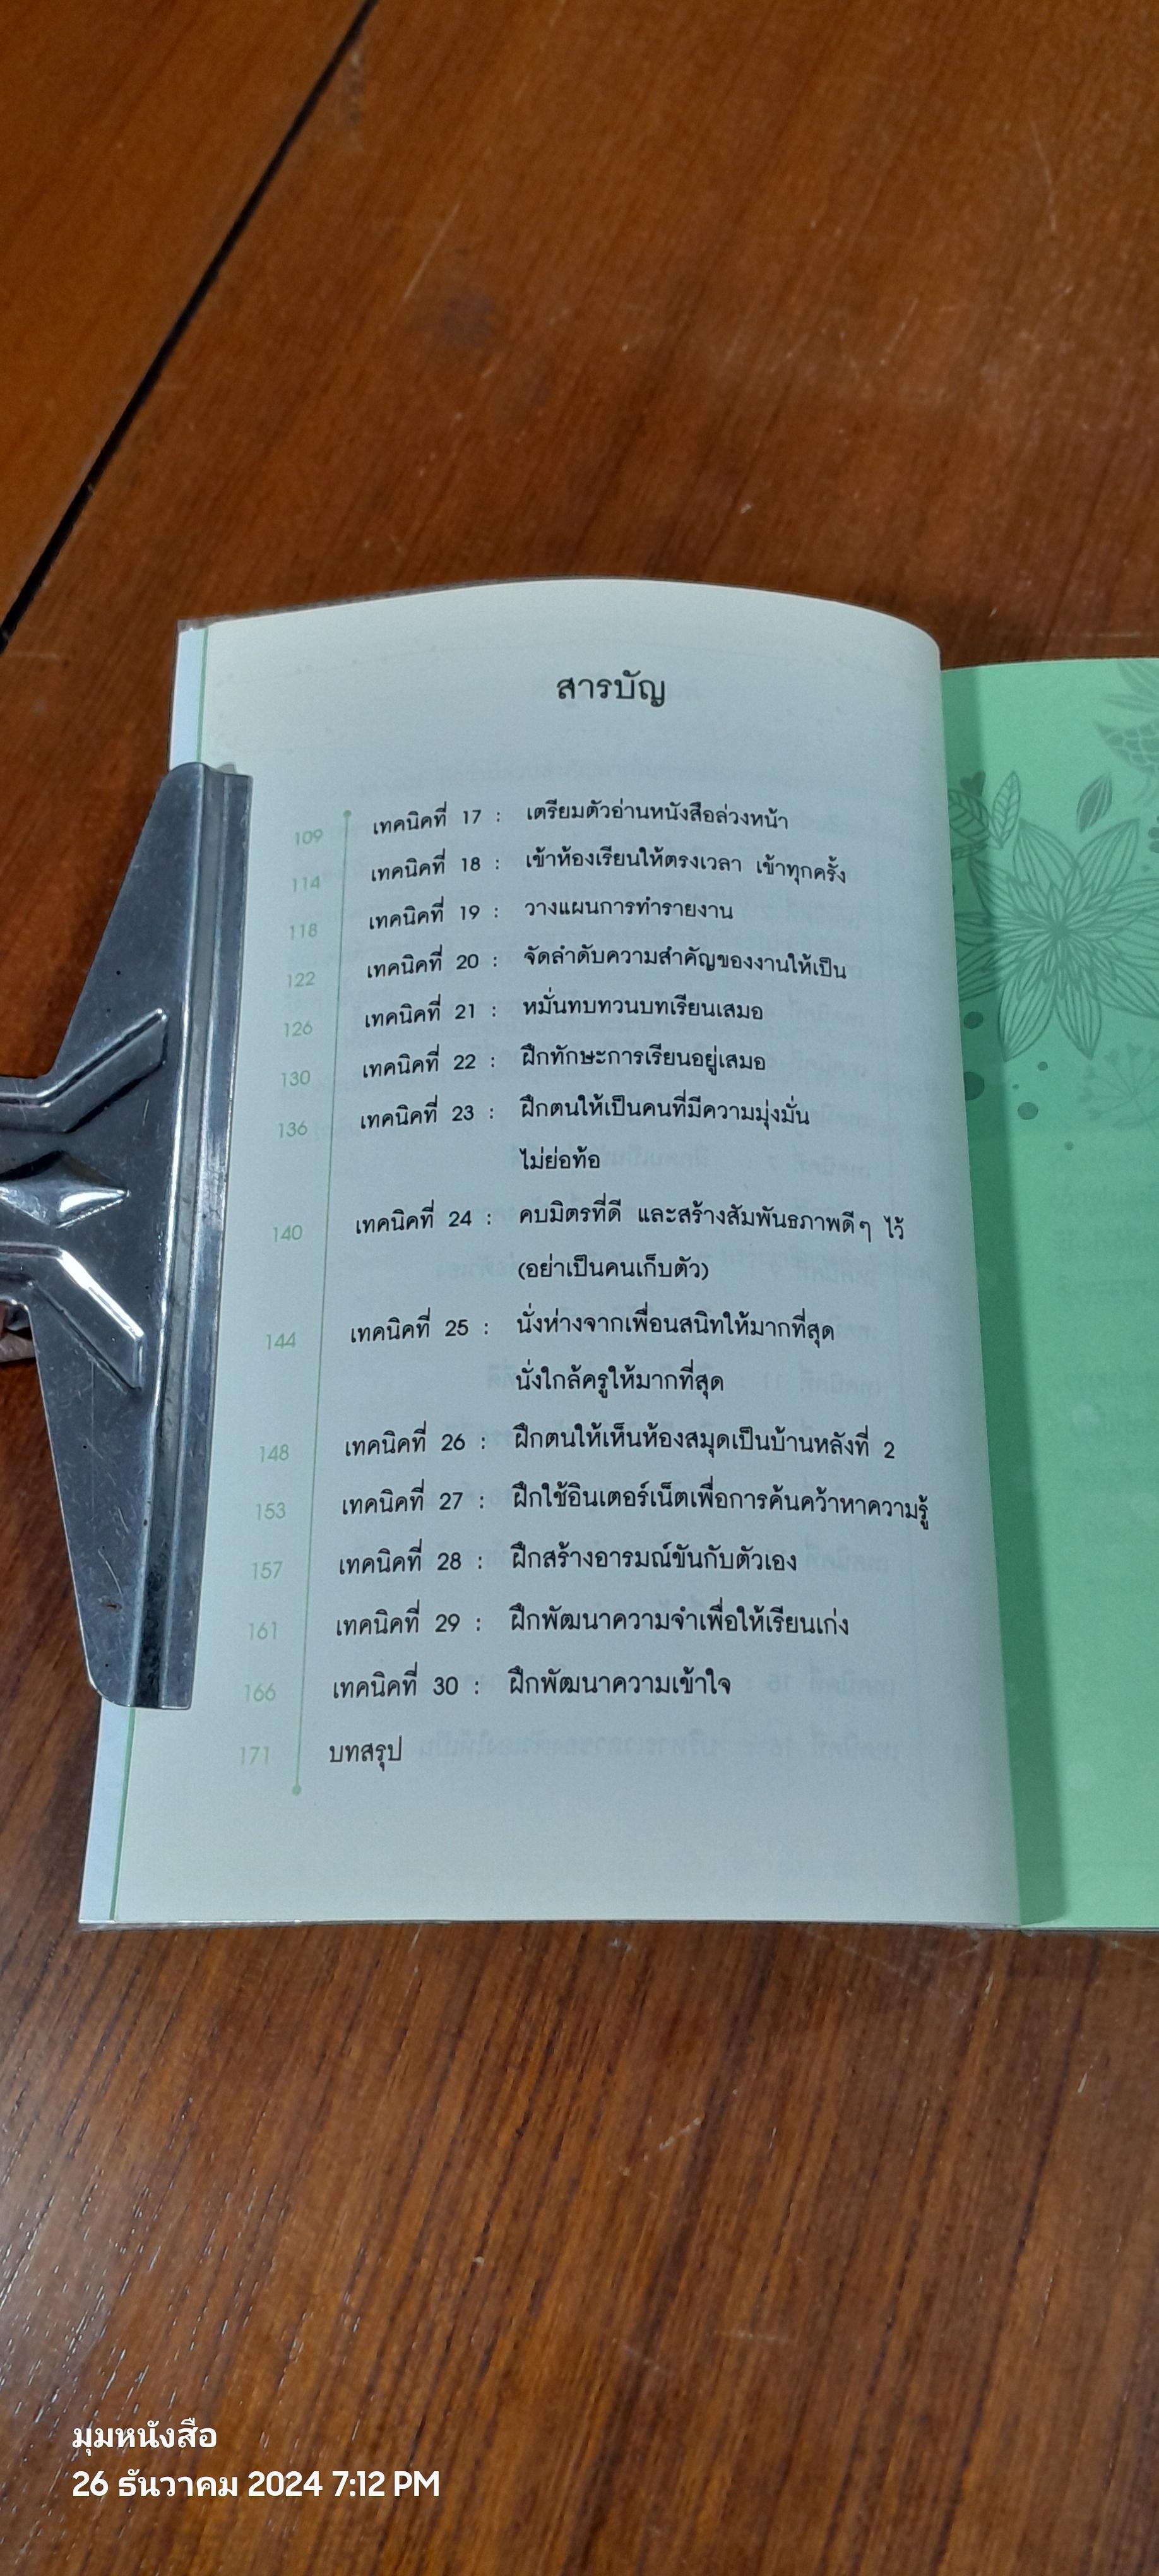 สารบัญ
109 เทคนิคที่ 17 : เตรียมตัวอ่านหนังสือล่วงหน้า
114 เทคนิคที่ 18 : เข้าห้องเรียนให้ตรงเวลา เข้าทุกครั้ง
118 เทคนิคที่ 19 : วางแผนการทำรายงาน
122 เทคนิคที่ 20 : จัดลำดับความสำคัญของงานให้เป็น
126 เทคนิคที่ 21 : หมั่นทบทวนบทเรียนเสมอ
130 เทคนิคที่ 22 : ฝึกทักษะการเรียนอยู่เสมอ
136 เทคนิคที่ 23 : ฝึกตนให้เป็นคนที่มีความมุ่งมั่น
ไม่ย่อท้อ
140 เทคนิคที่ 24 : คบมิตรที่ดี และสร้างสัมพันธภาพดีๆ ไว้
(อย่าเป็นคนเก็บตัว)
144 เทคนิคที่ 25 : นั่งห่างจากเพื่อนสนิทให้มากที่สุด
นั่งใกล้ครูให้มากที่สุด
148 เทคนิคที่ 26 : ฝึกตนให้เห็นห้องสมุดเป็นบ้านหลังที่ 2
153 เทคนิคที่ 27 : ฝึกใช้อินเตอร์เน็ตเพื่อการค้นคว้าหาความรู้
157 เทคนิคที่ 28 : ฝึกสร้างอารมณ์ขันกับตัวเอง
161 เทคนิคที่ 29 : ฝึกพัฒนาความจำเพื่อให้เรียนเก่ง
166 เทคนิคที่ 30 : ฝึกพัฒนาความเข้าใจ
171 บทสรุป
มุมหนังสือ
26 ธันวาคม 2024 7:12 PM